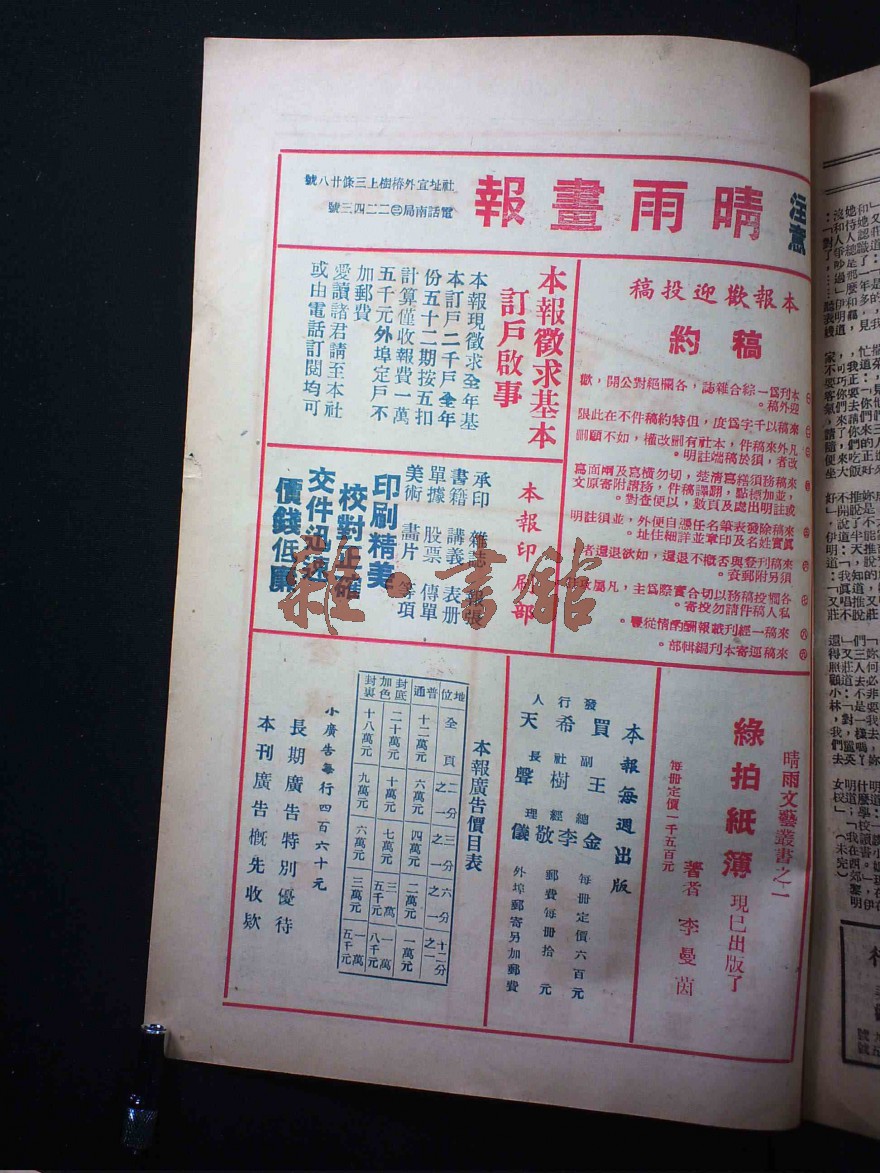 注意
晴雨畫報
社址宣外椿樹上三條廿八號
電話南局㊂二二四三號
本報歡迎投稿
稿約
本刊爲一綜合雜誌，各欄絕對公開，歡
迎外稿。
來稿以千字爲度，但特約稿件不在此限
凡外來稿件，本社有刪改權，如不願刪
改者，須於稿端註明。
來稿務須繕寫清楚，切勿橫寫及兩面寫
，並加標點，翻譯稿件，務請附寄原文
或註明出處及頁數，以便查對。
來稿除發表筆名任憑自便外，並須註明
眞實姓名及印章並詳細住址。
來稿刊登與否概不退還，如欲退還者
須另附郵資。
各欄投稿務以切合實際爲主，凡屬
私人稿件請勿投寄。
來稿一經刊載報酬酌情從豐。
來稿逕寄本刊編輯部。
本報徵求基本
訂戶啟事
本報現徵求全年基
本訂戶二千戶全年
份五十二期按五扣
計算僅收報費一萬
五千元外埠定戶不
加郵費
愛讀諸君請至本社
或由電話訂閱均可
本報印刷部
承印 雜誌 報張
書籍 講義 表册
單據 股票 傳單
美術 畫片 等項
印刷精美
校對正確
交件迅速
價錢低廉
晴雨文藝叢書之二
綠拍紙簿 現已出版了
著者 李曼茵
每冊定價一千五百元
本報每週出版
發行人 買希天
副社長 王樹聲
總經理 金李敬儀
每冊定價六百元
郵費每冊拾元
外埠郵寄另加郵費
本報廣告價目表
地位 全頁 二分之一 三分之一 六分之一 十二分之一
普通 十二萬元 六萬元 四萬元 二萬元 一萬元
封底加色 二十萬元 十萬元 七萬元 三萬五千元 一萬八千元
封裏 十八萬元 九萬元 六萬元 三萬元 一萬五千元
小廣告每行四百六十元
長期廣告特別優待
本刊廣告概先收欵
雜·書館